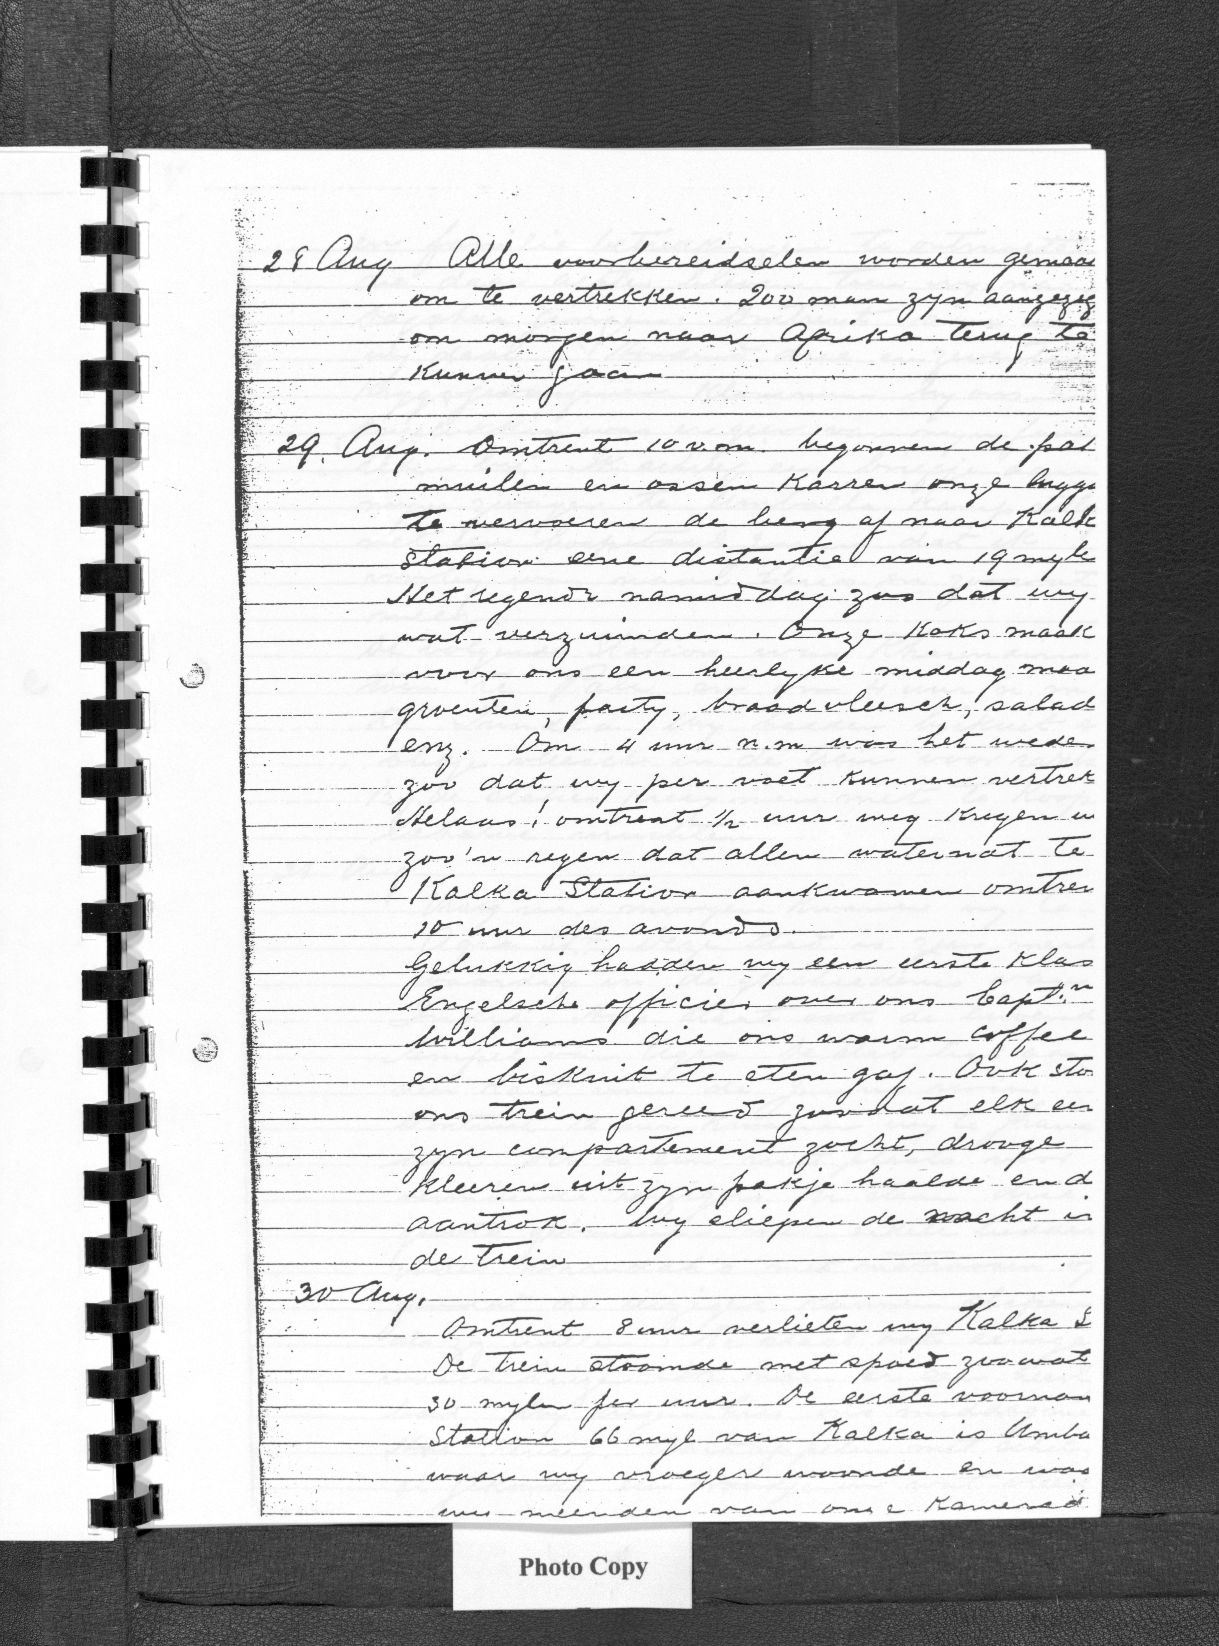 28 Aug Alle voorbereidselen worden gemaa
om te vertrekken. 200 man zyn aangezeg
om morgen naar Afrika terug te
Kunnen gaan
29. Aug. Omtrent 10 v.m. begonnen de pak
muilen en ossen Karren onze bagga
te vervoeren de berg af naar Kalk
Station eene distantie van 19 myle
Het regende namiddag zoo dat wy
wat verzuimden. Onze Koks maak
voor ons een heerlyke middag maa
groenten, pasty, braadvleesch, salad
enz. Om 4 uur n.m was het weder
zoo dat wy per voet kunnen vertrek
Helaas! omtrent 1/2 uur weg kregen w
zoo'n regen dat allen waternat te
Kalka Station aankwamen omtren
10 uur des avonds.
Gelukkig hadden wy een eerste klas
Engelsche officier over ons Capt.n
Williams die ons warm coffee
en biskuit te eten gaf. Ook sto
ons trein gereed zoodat elk een
zyn compartement zocht, drooge
kleeren uit zyn pakje haalde en d
aantrok. Wy sliepen de nacht in
de trein
30 Aug.
Omtrent 8 uur verlieten wy Kalka S
De trein stoomde met spoed zoowat
30 mylen per uur. De eerste voornam
Station 66 myl van Kalka is Umba
waar wy vroeger woonde en was
meenden van onze Kamerad
Photo Copy